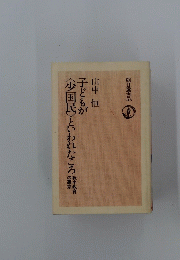 山中 恒
子どもが
〈少国民〉といわれたころ
朝日選書